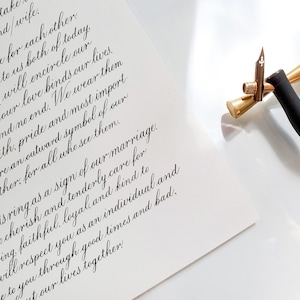 take
nd wife.
e for each other
to us both of today.
will encircle our
our love binds our lives.
We wear them
nd no end.
th, pride and most import
re an outward symbol of our
ther, for all who see them.
is ring as a sign of our marriage.
cherish and tenderly care for
ing, faithful, loyal, and kind to
will respect you as an individual and
e to you through good times and bad,
t our lives together.